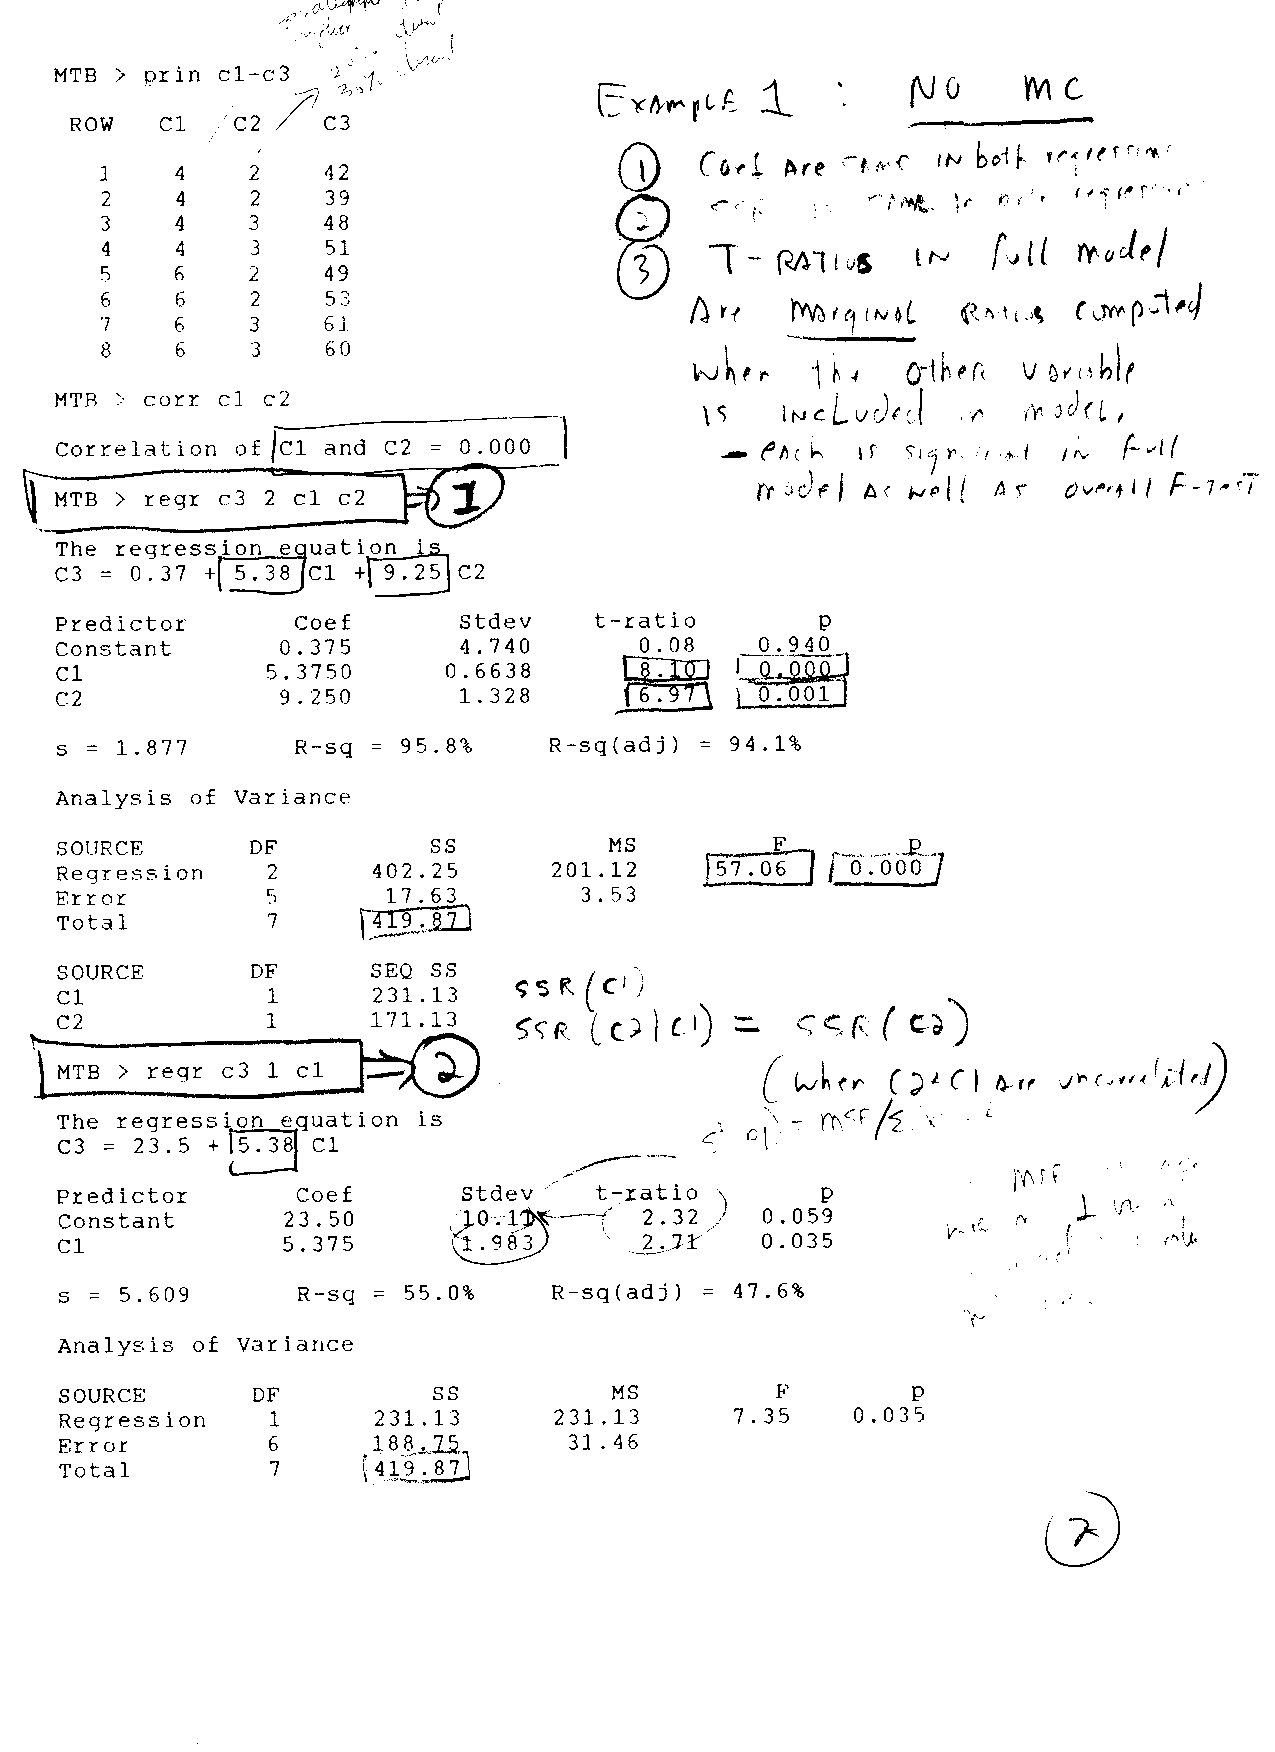 MTB > prin c1-c3
30%
EXAMPLE 1 : NO MC
ROW C1 C2 C3
1 4 2 42
2 4 2 39
3 4 3 48
4 4 3 51
5 6 2 49
6 6 2 53
7 6 3 61
8 6 3 60
① Coef Are SAME IN both regressions
② SSR is SAME in both regressions
③ T-RATIOS IN full model
Are MARGINAL RATIOS computed
when the other variable
IS INCLUDED in model.
- each is significant in full
model AS well AS overall F-TEST
MTB > corr c1 c2
Correlation of C1 and C2 = 0.000
MTB > regr c3 2 c1 c2 ⇒ ①
The regression equation is
C3 = 0.37 + 5.38 C1 + 9.25 C2
Predictor Coef Stdev t-ratio p
Constant 0.375 4.740 0.08 0.940
C1 5.3750 0.6638 8.10 0.000
C2 9.250 1.328 6.97 0.001
s = 1.877 R-sq = 95.8% R-sq(adj) = 94.1%
Analysis of Variance
SOURCE DF SS MS F p
Regression 2 402.25 201.12 57.06 0.000
Error 5 17.63 3.53
Total 7 419.87
SOURCE DF SEQ SS
C1 1 231.13 SSR(C1)
C2 1 171.13 SSR(C2|C1) = SSR(C2)
(when C2 & C1 Are uncorrelated)
MTB > regr c3 1 c1 ⇒ ②
The regression equation is
C3 = 23.5 + 5.38 C1
Predictor Coef Stdev t-ratio p
Constant 23.50 10.11 2.32 0.059
C1 5.375 1.983 2.71 0.035
s = 5.609 R-sq = 55.0% R-sq(adj) = 47.6%
Analysis of Variance
SOURCE DF SS MS F p
Regression 1 231.13 231.13 7.35 0.035
Error 6 188.75 31.46
Total 7 419.87
②